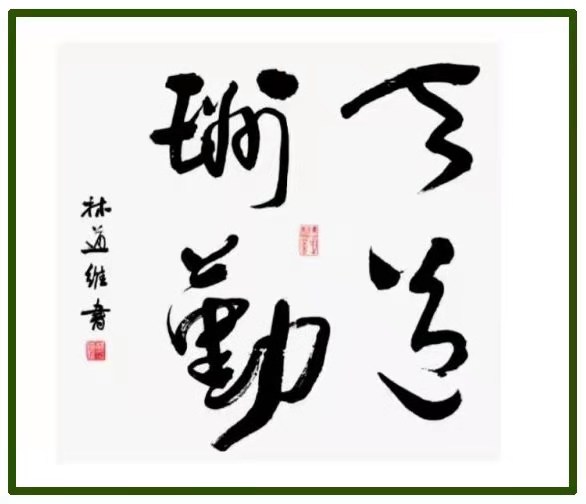 天道
酬勤
林道維書